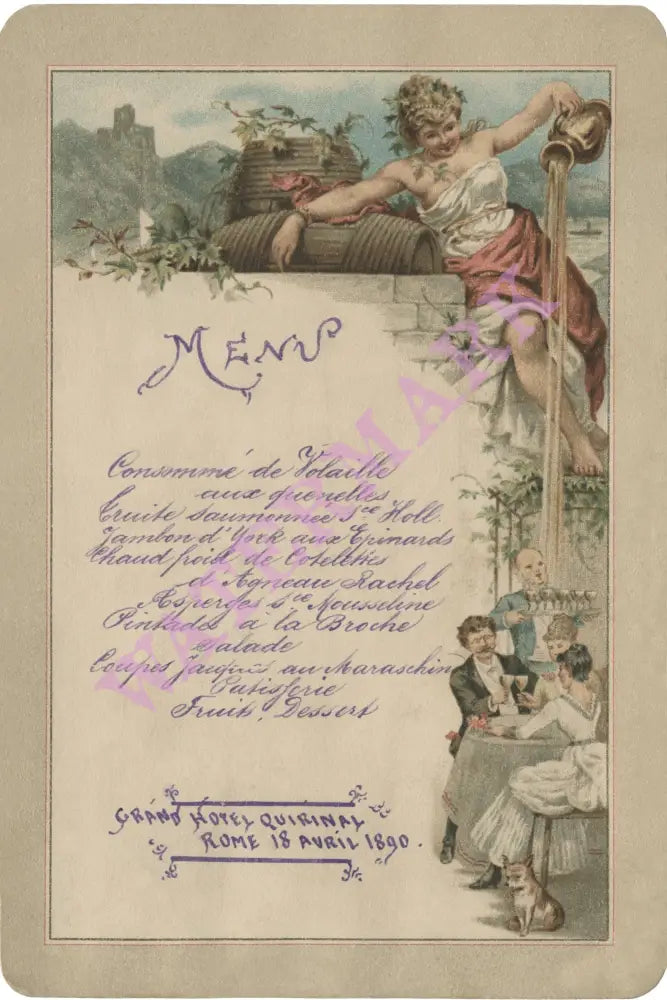 MENU
Consommé de Volaille
aux quenelles
Truite Saumonnée sce Holl.
Jambon d'York aux Epinards
Chaud froid de Cotelettes
d'Agneau Rachel
Asperges sce Mousseline
Pintades a la Broche
Salade
Coupes Jacques au Maraschin
Patisserie
Fruits, Dessert
GRAND HOTEL QUIRINAL
ROME 18 AVRIL 1890.
WATERMARK